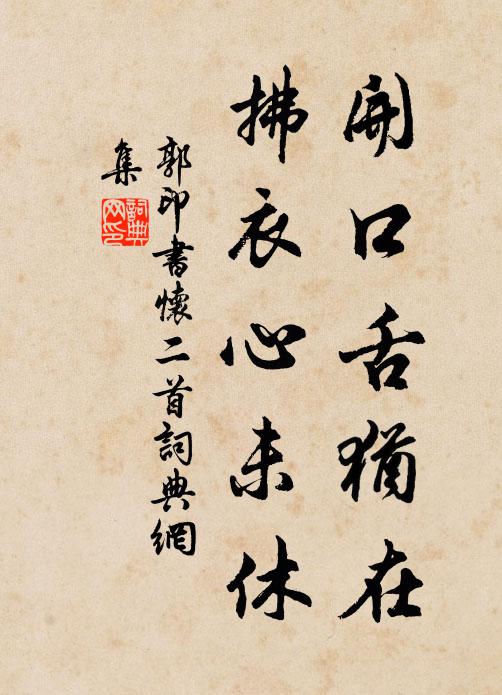 開口舌猶在
拂衣心未休
郭印書懷二首詞典網
集
詞典
网印